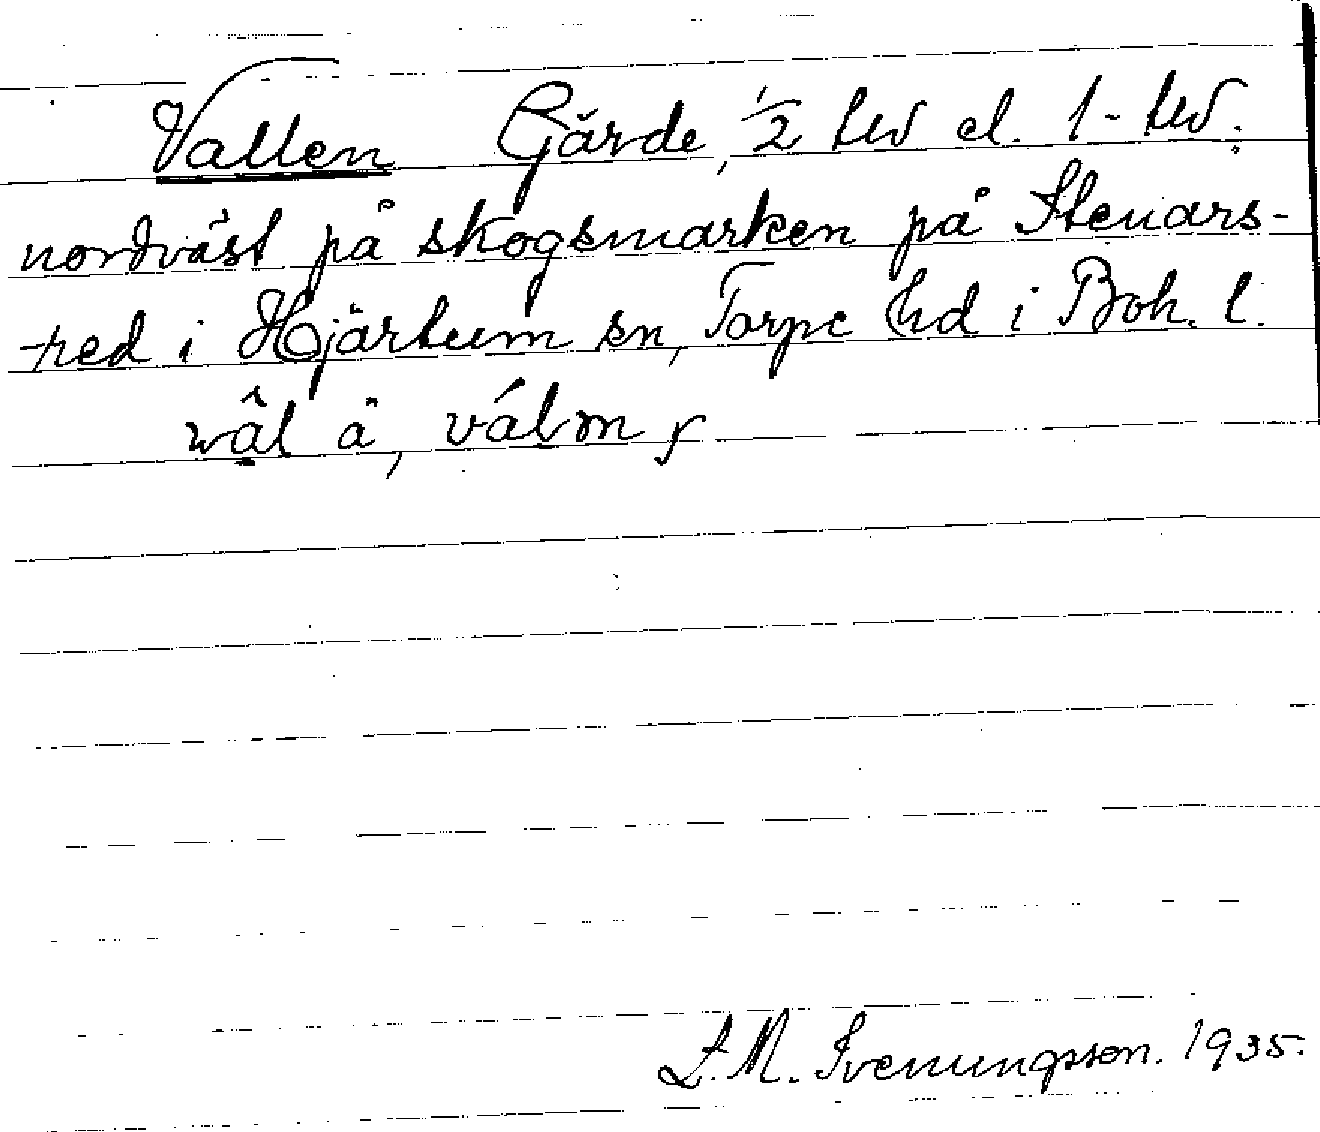 Vallen Gärde, ½ tld el. 1-tld.
nordväst på skogsmarken på Stenars-
-red i Hjärtum sn, Torpe hd i Boh. l.
L.M. Svenungsson. 1935.